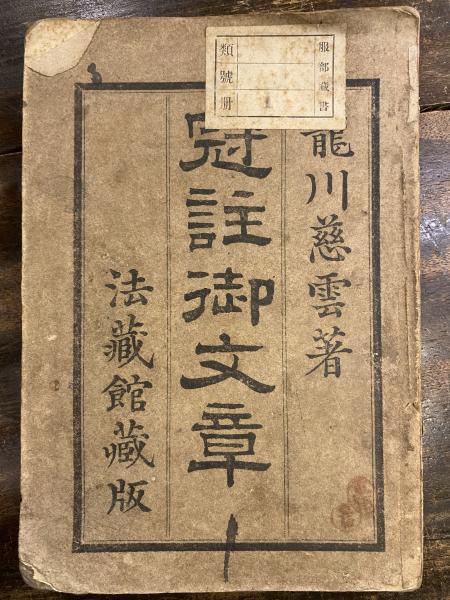 服部藏書
類號册
龍川慈雲著
冠註御文章
法藏館藏版